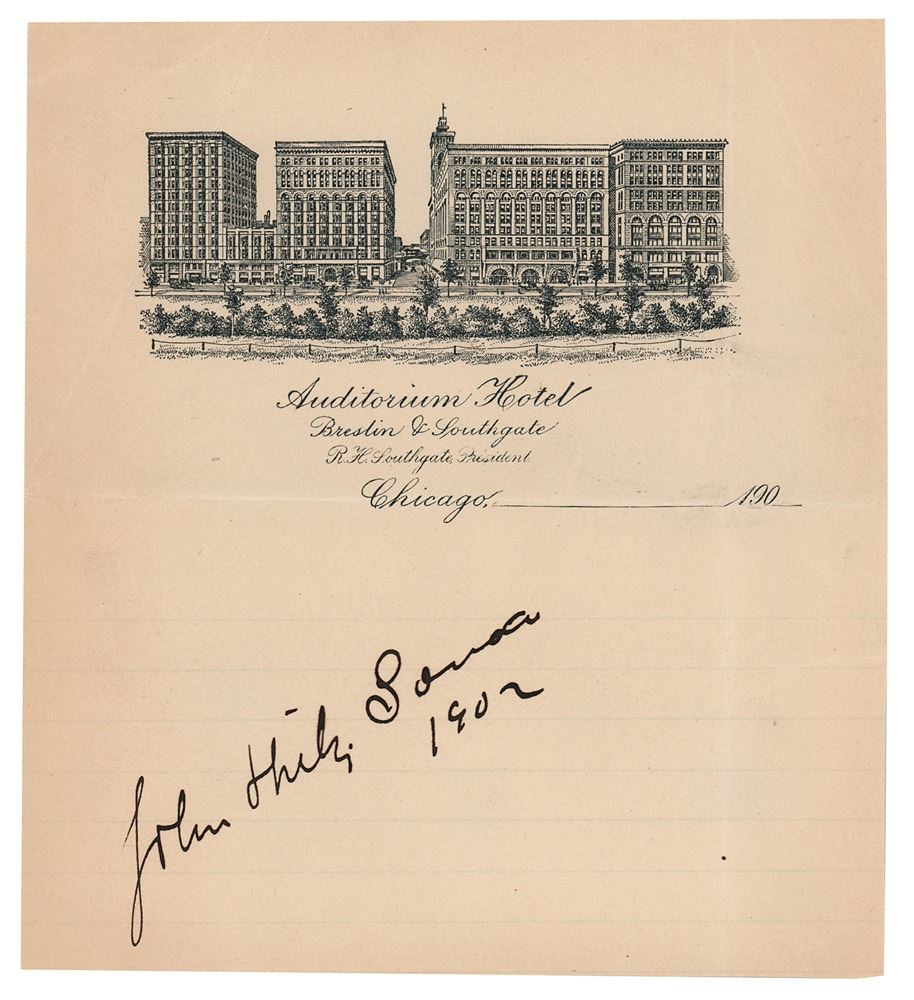 Auditorium Hotel
Breslin & Southgate
R.H. Southgate, President.
Chicago, 190
John Philip Sousa
1902